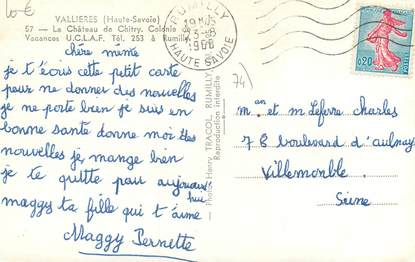 10 €
VALLIERES (Haute-Savoie)
57 - Le Château de Chitry. Colonie de
Vacances U.C.L.A.F. Tél. 253 à Rumilly
chère mémé
je t'écris cette petit carte
pour me donner des nouvelles
je me porte bien je suis en
bonne santé donne moi des
nouvelles je mange bien
je te quitte pour aujourd
hui
maggy ta fille qui t'aime
Maggy Pernette
Photo Henry TRACOL, RUMILLY
Reproduction interdite
RUMILLY
3-8
HAUTE SAVOIE
0,20
74
M. an et M. Lefèvre Charles
78 boulevard d'aulnay
Villemomble.
Seine